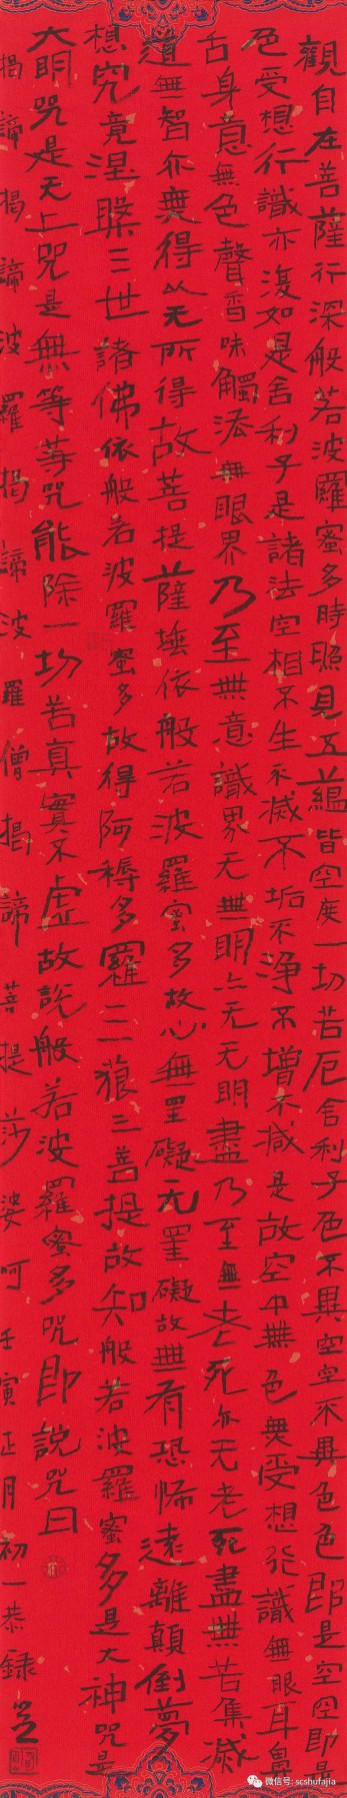 觀自在菩薩行深般若波羅蜜多時照見五蘊皆空度一切苦厄舍利子色不異空空不異色色即是空空即是
色受想行識亦復如是舍利子是諸法空相不生不滅不垢不淨不增不減是故空中無色無受想行識無眼耳鼻
舌身意無色聲香味觸法無眼界乃至無意識界无無明亦无无明盡乃至無老死亦无老死盡無苦集滅
道無智亦無得以无所得故菩提薩埵依般若波羅蜜多故心無罣礙无罣礙故無有恐怖遠離顛倒夢
想究竟涅槃三世諸佛依般若波羅蜜多故得阿耨多羅三藐三菩提故知般若波羅蜜多是大神咒是
大明咒是无上咒是無等等咒能除一切苦真實不虛故說般若波羅蜜多咒即說咒曰
揭諦揭諦波羅揭諦波羅僧揭諦菩提莎婆呵 壬寅正月初一恭録
微信号: scshufajia